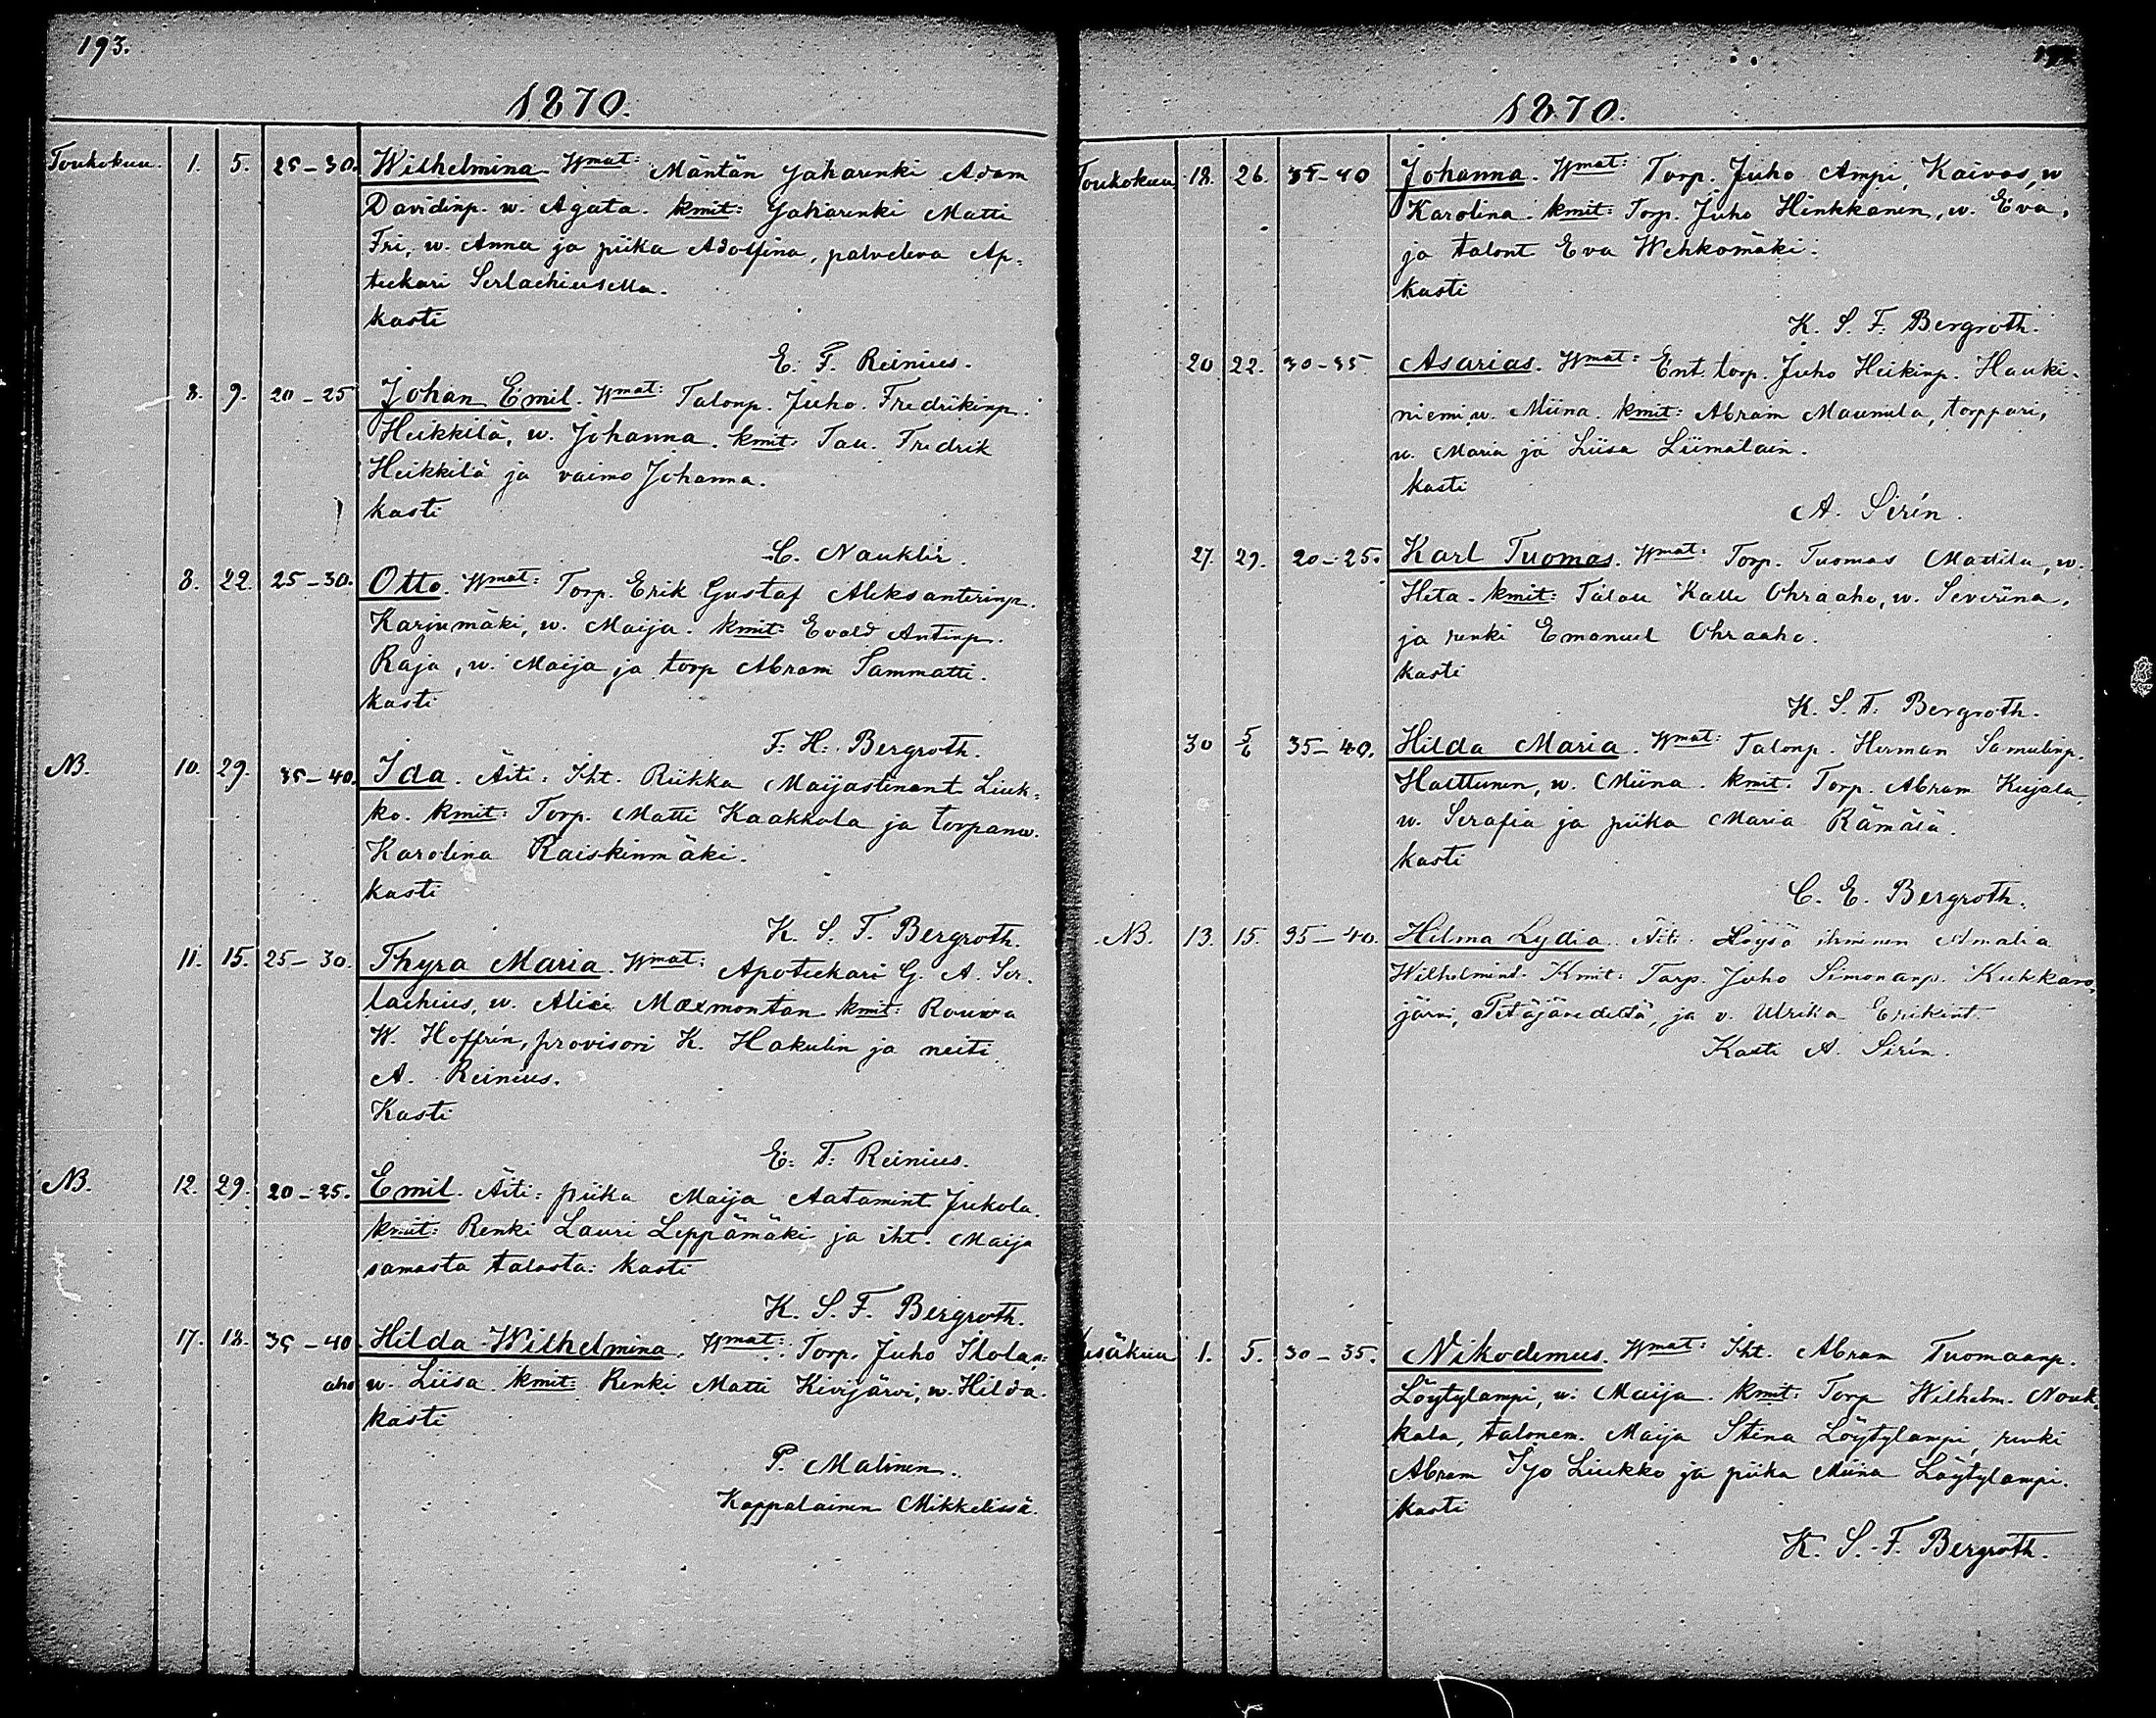 193.
1870.
Toukokuu. 1. 5. 25-30. Wilhelmina. Wmat: Mäntän Jaharenki Adam
Davidinp. w. Agata. kmit: Jaharenki Matti
Fri, w. Anna ja piika Adolfina, palveleva Ap-
teekari Serlachiusella.
kasti
E. F. Reinius.
8. 9. 20-25 Johan Emil. Wmat: Talonp. Juho Fredrikinp.
Heikkilä, w. Johanna. kmit: Tau. Fredrik
Heikkilä ja vaimo Johanna.
kasti
C. Nauklér.
8. 22. 25-30. Otto. Wmat: Torp. Erik Gustaf Aleksanterinp.
Karjumäki, w. Maija. kmit: Evald Antinp.
Raja, w. Maija ja torp Abram Sammatti.
kasti
F. H. Bergroth.
NB. 10. 29. 35-40. Ida. Äiti: Iht. Riikka Maijastinant. Liuk-
ko. kmit: Torp. Matti Kaakkola ja torpanw.
Karolina Raiskinmäki.
kasti
K. S. F. Bergroth.
11. 15. 25-30. Thyra Maria. Wmat: Apoteekari G. A. Ser-
lachius, w. Alice Maexmontan kmit: Rouwa
W. Hoffrén, provisori K. Hakulin ja neiti
A. Reinius.
Kasti
E. F. Reinius.
NB. 12. 29. 20-25. Emil. Äiti: piika Maija Aatamint Jukola.
kmit: Renki Lauri Leppämäki ja iht. Maija
samasta talosta: kasti
K. S. F. Bergroth.
17. 18. 35-40 Hilda Wilhelmina. Wmat: Torp. Juho Ilolan-
aho w. Liisa. kmit: Renki Matti Kivijärvi, w. Hilda.
kasti
P. Malinen.
Kappalainen Mikkelissä.
1870.
Toukokuu 18. 26. 35-40 Johanna. Wmat: Torp. Juho Ampi, Kaivos, w
Karolina. kmit: Torp. Juho Hinkkanen, w. Eva,
ja talont Eva Wehkomäki.
kasti
K. S. F. Bergroth.
20 22. 30-35. Asarias. Wmat: Ent. torp. Juho Heikinp. Hauki-
niemi w. Miina. kmit: Abram Maunula, torppari,
w. Maria ja Liisa Liimalain.
kasti
A. Sirén.
27. 29. 20-25. Karl Tuomas. Wmat: Torp. Tuomas Mattila, w.
Heta. kmit: Talou Kalle Ohraaho, w. Severiina,
ja renki Emanuel Ohraaho.
kasti
K. S. F. Bergroth.
30 5/6 35-40. Hilda Maria. Wmat: Talonp. Herman Samulinp.
Halttunen, w. Miina. kmit. Torp. Abram Kujala,
w. Serafia ja piika Maria Rämälä.
kasti
C. E. Bergroth.
NB. 13. 15. 35-40. Hilma Lydia. Äiti. Löysä ihminen Amalia
Wilhelmint. Kmit: Torp. Juho Simonanp. Kukkaro-
järvi, Petäjävedeltä, ja v. Ulrika Erikint.
Kasti A. Sirén.
Kesäkuu 1. 5. 30-35. Nikodemus. Wmat: Iht. Abram Tuomaanp.
Löytylampi, w. Maija. kmit: Torp Wilhelm. Nouk-
kala, talonem. Maija Stina Löytylampi, renki
Abram Ijo Liukko ja piika Miina Löytylampi.
kasti
K. S. F. Bergroth.